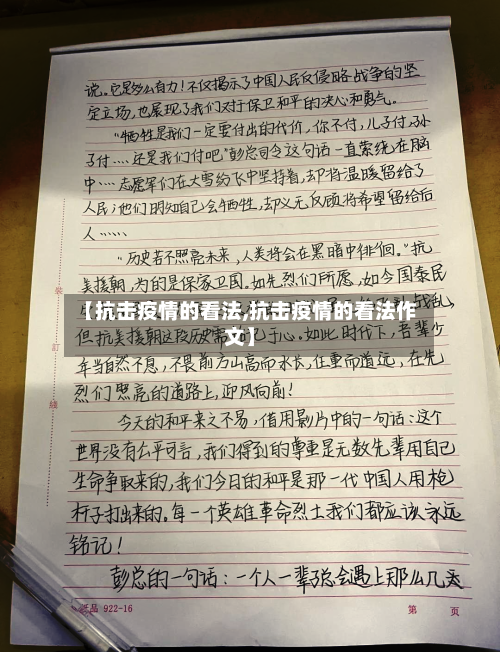 说。它是多么有力！不仅揭示了中国人民反侵略战争的坚
定立场，也展现了我们对于保卫和平的决心和勇气。
"牺牲是我们一定要付出的代价，你不付，儿子付，孙
子付……还是我们付吧"彭总司令这句话一直萦绕在脑
中……志愿军们在大雪纷飞中坚持着，却将温暖留给了
人民；他们明知自己会牺牲，却义无反顾将希望留给后
人……
"历史若不照亮未来，人类将会在黑暗中徘徊。"抗
美援朝，为的是保家卫国。如先烈们所愿，如今国泰民
战乱，
【抗击疫情的看法,抗击疫情的看法作
文】
但抗美援朝这段历史需 于心。如此时代下，吾辈少
年当自然不息，不畏前方山高而水长，任重而道远，在先
烈们照亮的道路上，迎风向前！
今天的和平来之不易，借用影片中的一句话：这个
世界没有公平可言，我们得到的尊重是无数先辈用自己
生命争取来的，我们今日的和平是那一代中国人用枪
杆子打出来的。每一个英雄革命烈士我们都应该永远
铭记！
彭总的一句话：一个人一辈子总会遇上那么几支
装
訂
綫
品 922-16
第 页